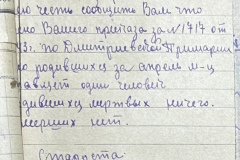 ею честь сообщить Вам что
но Вашего приказа за № 1717 от
3г. по Дмитриевской Примарии
ло родившихся за апрель м-ц
один человек
дившихся мертвых ничего.
мерших нет.
Староста